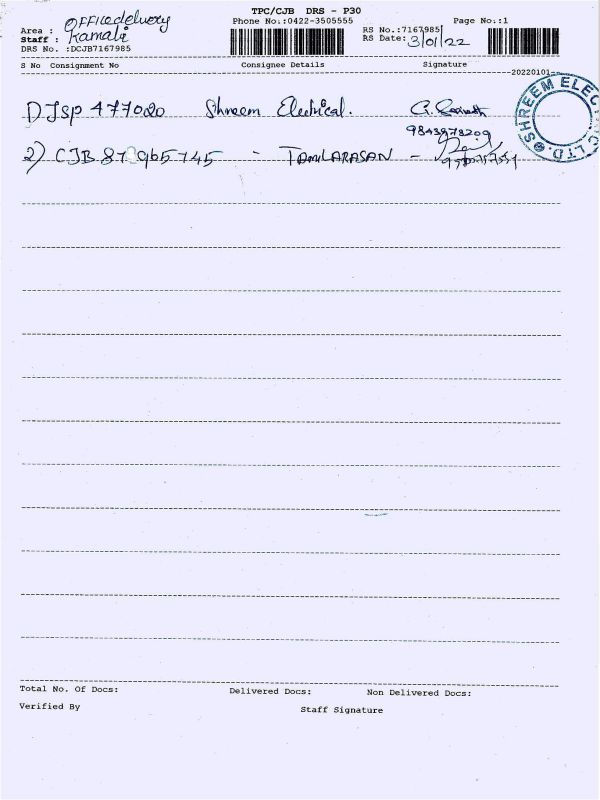 TPC/CJB DRS - P30
Phone No.:0422-3505555
Page No.:1
Area : Officedelivery
Staff : Kamali
DRS No. :DCJB7167985
RS No.:7167985
RS Date: 3/01/22
S No Consignment No Consignee Details Signature
20220101
1) JSP 477020 Shreem Electrical.
9843978209
2) CJB 87 965745 - TAMILARASAN -
SHREEM ELEC
C LTD.
Total No. Of Docs: Delivered Docs: Non Delivered Docs:
Verified By Staff Signature